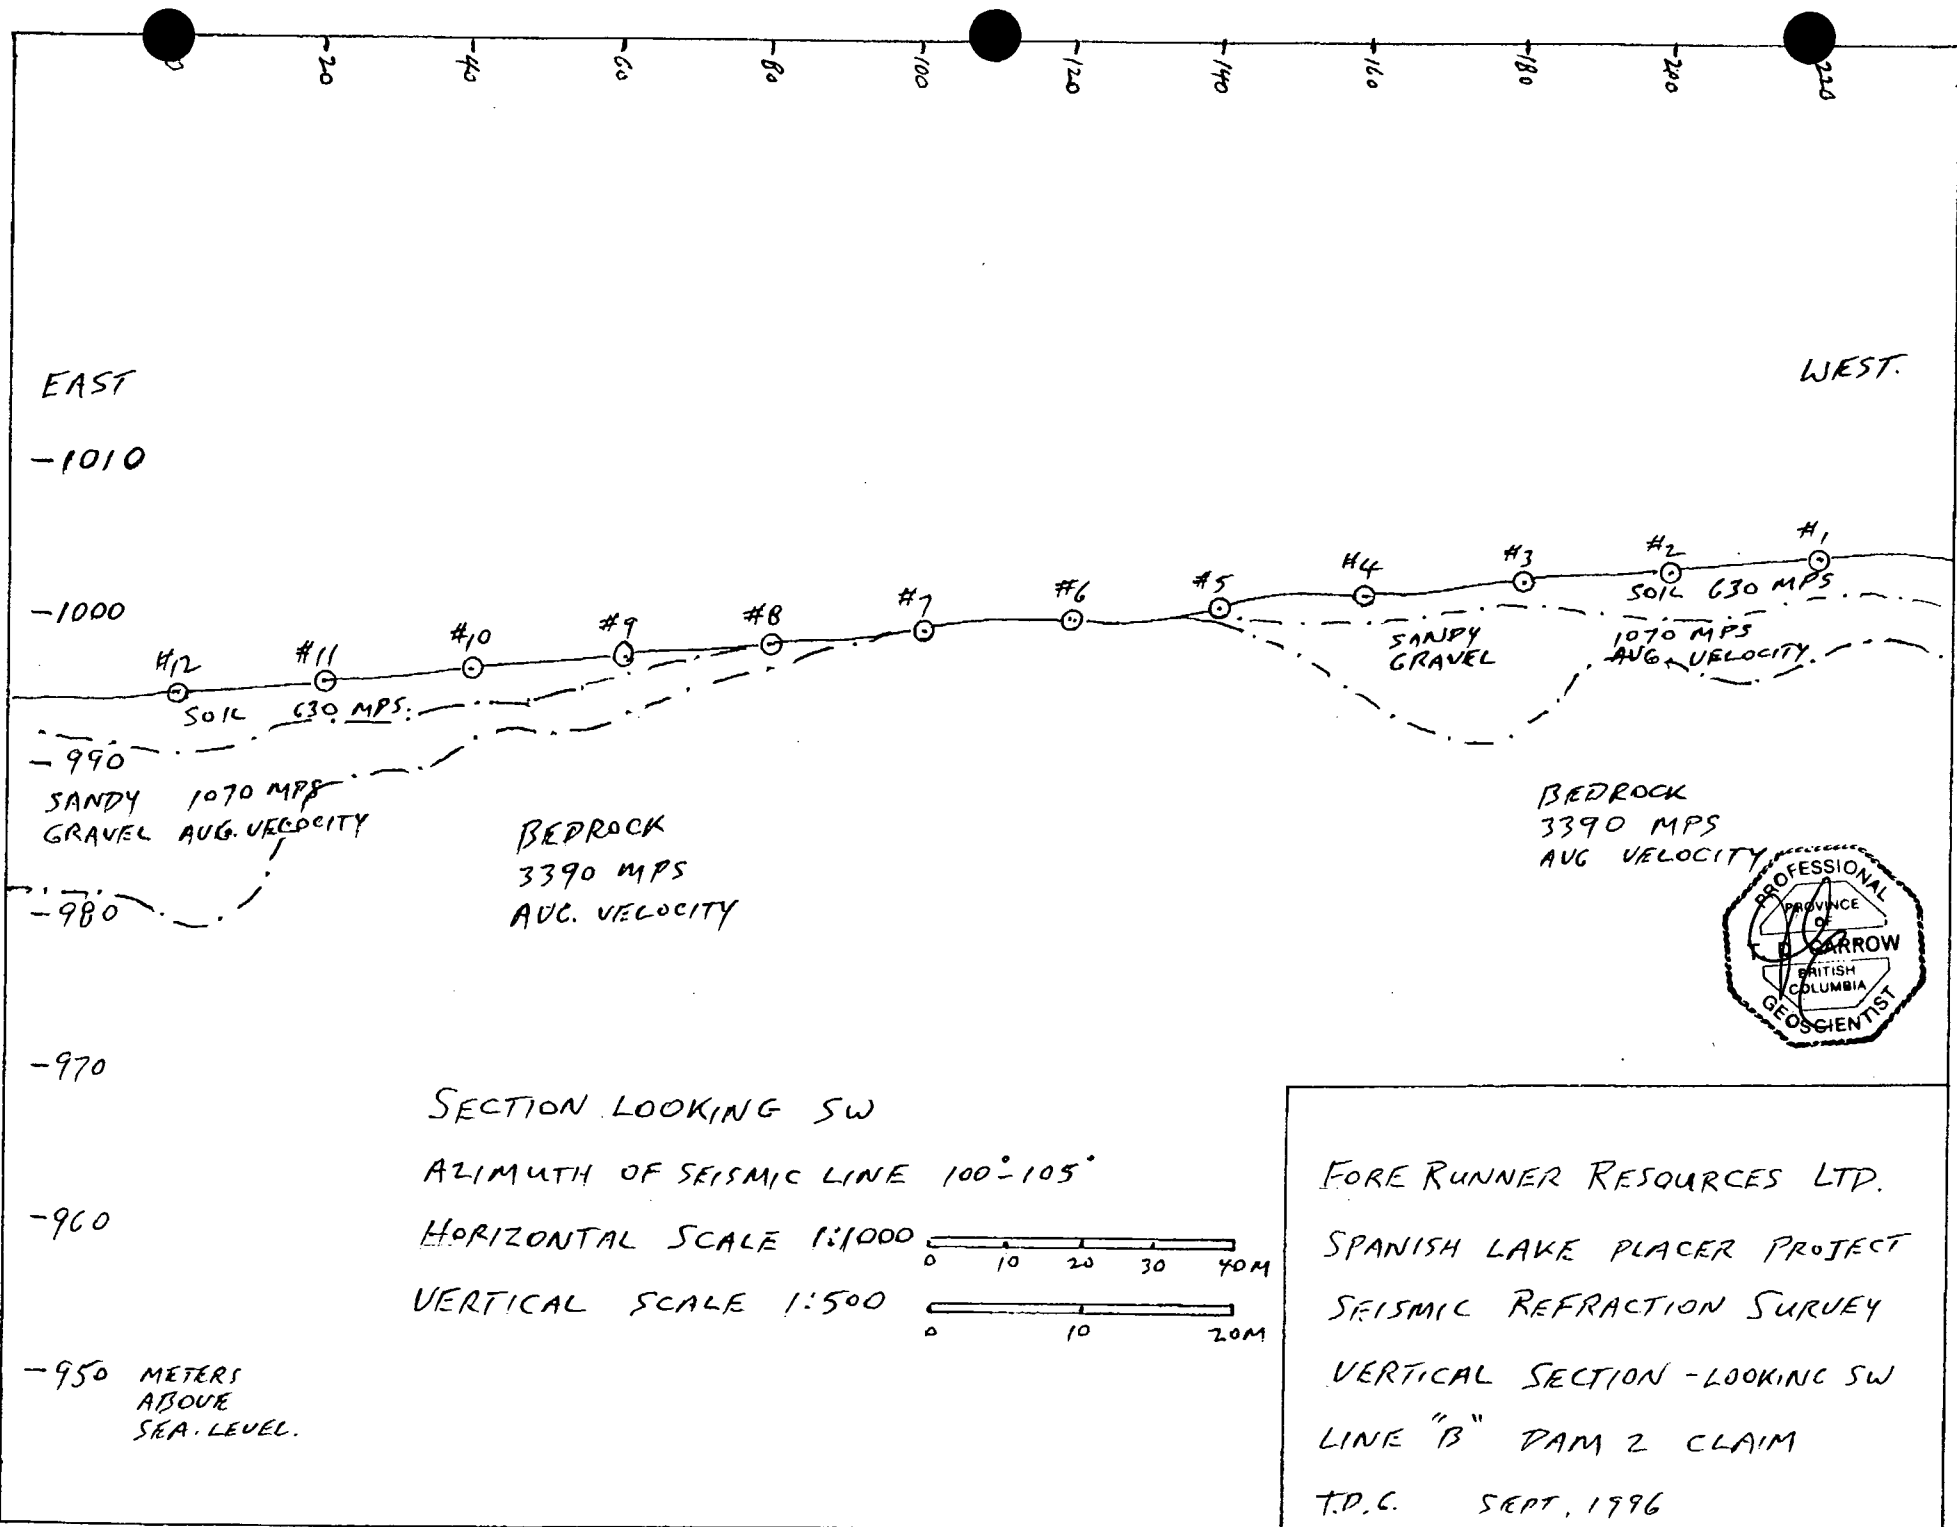 0 20 40 60 80 100 120 140 160 180 200 220
EAST
WEST.
-1010
#1
#2
#3
#4
#5
#6
#7
#8
#9
#10
#11
#12
-1000
SOIL 630 MPS
SANDY
GRAVEL
1070 MPS
AVG. VELOCITY
SOIL 630 MPS.
-990
SANDY 1070 MPS
GRAVEL AVG. VELOCITY
BEDROCK
3390 MPS
AVG. VELOCITY
BEDROCK
3390 MPS
AVG VELOCITY
-980
PROFESSIONAL
PROVINCE
OF
T. D. CARROW
BRITISH
COLUMBIA
GEOSCIENTIST
-970
SECTION LOOKING SW
AZIMUTH OF SEISMIC LINE 100°-105°
HORIZONTAL SCALE 1:1000
0 10 20 30 40M
-960
VERTICAL SCALE 1:500
0 10 20M
-950 METERS
ABOVE
SEA. LEVEL.
FORE RUNNER RESOURCES LTD.
SPANISH LAKE PLACER PROJECT
SEISMIC REFRACTION SURVEY
VERTICAL SECTION - LOOKING SW
LINE "B" DAM 2 CLAIM
T.D.C. SEPT, 1996